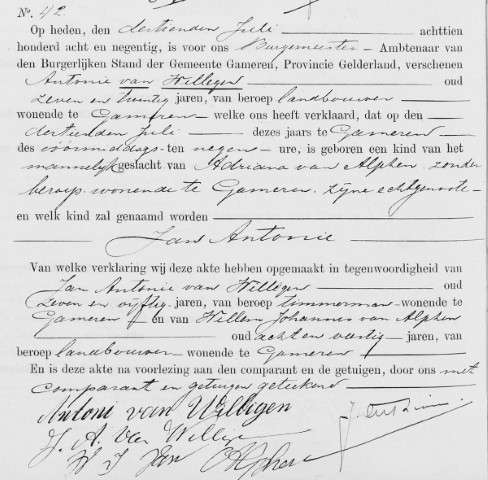 No. 42.
Op heden, den dertienden Juli achttien
honderd acht en negentig, is voor ons Burgemeester Ambtenaar van
den Burgerlijken Stand der Gemeente Gameren, Provincie Gelderland, verschenen
Antonie van Willigen oud
zeven en twintig jaren, van beroep landbouwer
wonende te Gameren welke ons heeft verklaard, dat op den
dertienden Juli dezes jaars te Gameren
des vóórmiddags ten negen ure, is geboren een kind van het
mannelijk geslacht van Adriana van Alphen, zonder
beroep, wonende te Gameren, zijne echtgenoote
en welk kind zal genaamd worden
Jan Antonie
Van welke verklaring wij deze akte hebben opgemaakt in tegenwoordigheid van
Jan Antonie van Willigen oud
zeven en vijftig jaren, van beroep timmerman wonende te
Gameren en van Willem Johannes van Alphen
oud acht en veertig jaren, van
beroep landbouwer wonende te Gameren
En is deze akte na voorlezing aan den comparant en de getuigen, door ons met
comparant en getuigen geteekend
Antoni van Willigen
J. A. Van Willige
W J Van Alphen